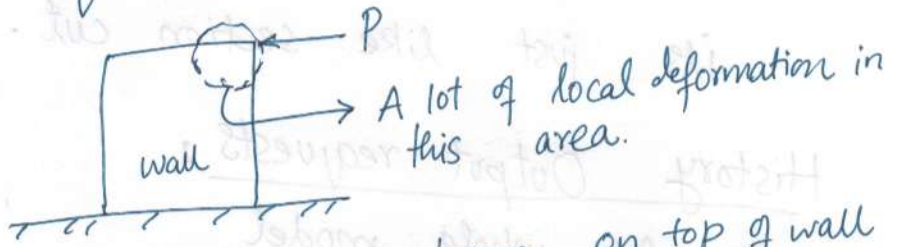 P
A lot of local deformation in
this area.
wall
on top of wall